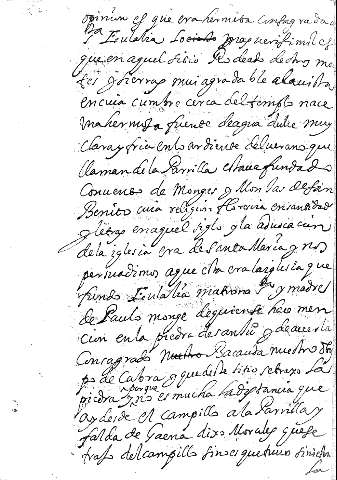 opinion es que era hermita consagrada a
Sta Eulalia y mas verisimil es
que en aquel sitio Rodeado de otros mo
tes y sierras mui agradable a la vista
en cuia cumbre cerca del templo nace
una hermosa fuente de agua dulce muy
clara y fria en lo ardiente del verano que
llaman de la Parrilla estava fundado
Convento de Monges y Monjas de San
Benito cuia religion florecia en santidad
y letras en aquel siglo y la advocacion
de la iglesia era de Santa Maria y nos
persuadimos a que esta era la iglesia que
fundo Eulalia matrona y madre
de Paulo monge de quien se hace men
cion en la piedra de santo y de averla
Consagrado Bacauda nuestro Obis
po de Cabra y que deste sitio se traxo la
piedra porque no es mucha la distancia que
ay desde el campillo a la Parrilla y
falda de Gaena dixo Morales que se
traxo del campillo sino es que tuvo siniestra